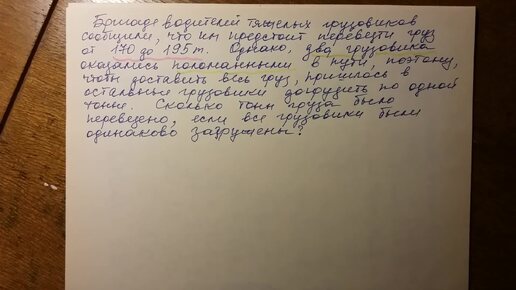 Бригаде водителей тяжелых грузовиков
сообщили, что им предстоит перевезти груз
от 170 до 195 т. Однако, два грузовика
оказались поломанными в пути, поэтому,
чтобы доставить весь груз, пришлось в
остальные грузовики догрузить по одной
тонне. Сколько тонн груза было
перевезено, если все грузовики были
одинаково загружены?